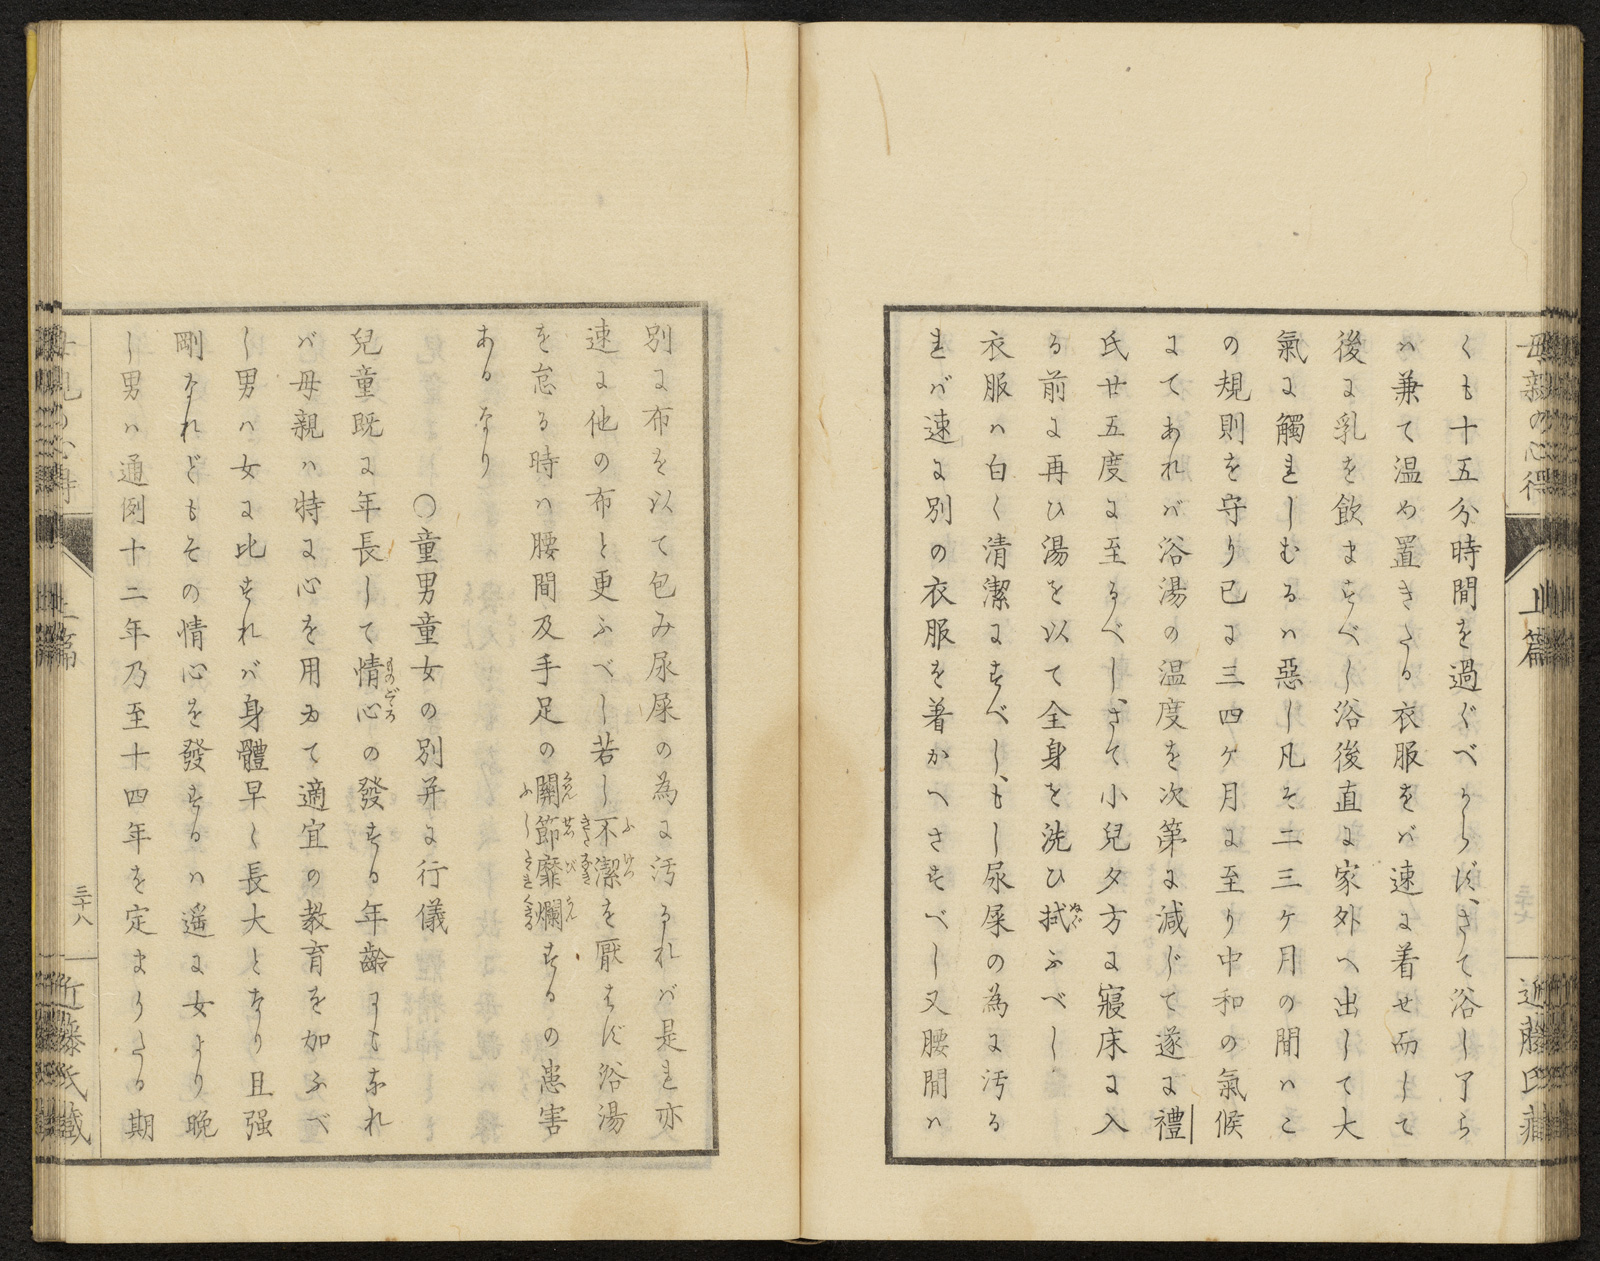 母親の心得 上篇 近藤氏蔵
くも十五分時間を過ぐべからず、さて浴し了ら
ハ兼て温め置きたる衣服をバ速に着せ而して
後に乳を飲ますべし浴後直に家外へ出して大
氣に觸れしむるハ惡し凡そ二三ヶ月の間ハこ
の規則を守り已に三四ヶ月に至り中和の氣候
にてあれバ浴湯の温度を次第に減じて遂に禮
氏廿五度に至るべし、さて小兒夕方に寢床に入
る前に再ひ湯を以て全身を洗ひ拭ふべし
衣服ハ白く清潔にすべし、もし尿屎の為に汚る
れバ速に別の衣服を着かへさすべし又腰間ハ
別に布を以て包み尿屎の為に汚るれバ是れ亦
速に他の布と更ふべし若し不潔を厭はず浴湯
を怠る時ハ腰間及手足の關節靡爛するの患害
あるなり
〇童男童女の別并に行儀
兒童既に年長して情心の發する年齢に至れ
バ母親ハ特に心を用ゐて適宜の教育を加ふべ
し男ハ女に比すれバ身體早く長大となり且强
剛なれどもその情心を發するハ遥に女より晩
し男ハ通例十二年乃至十四年を定まりたる期
母親の心得 上篇 三十八 近藤氏蔵